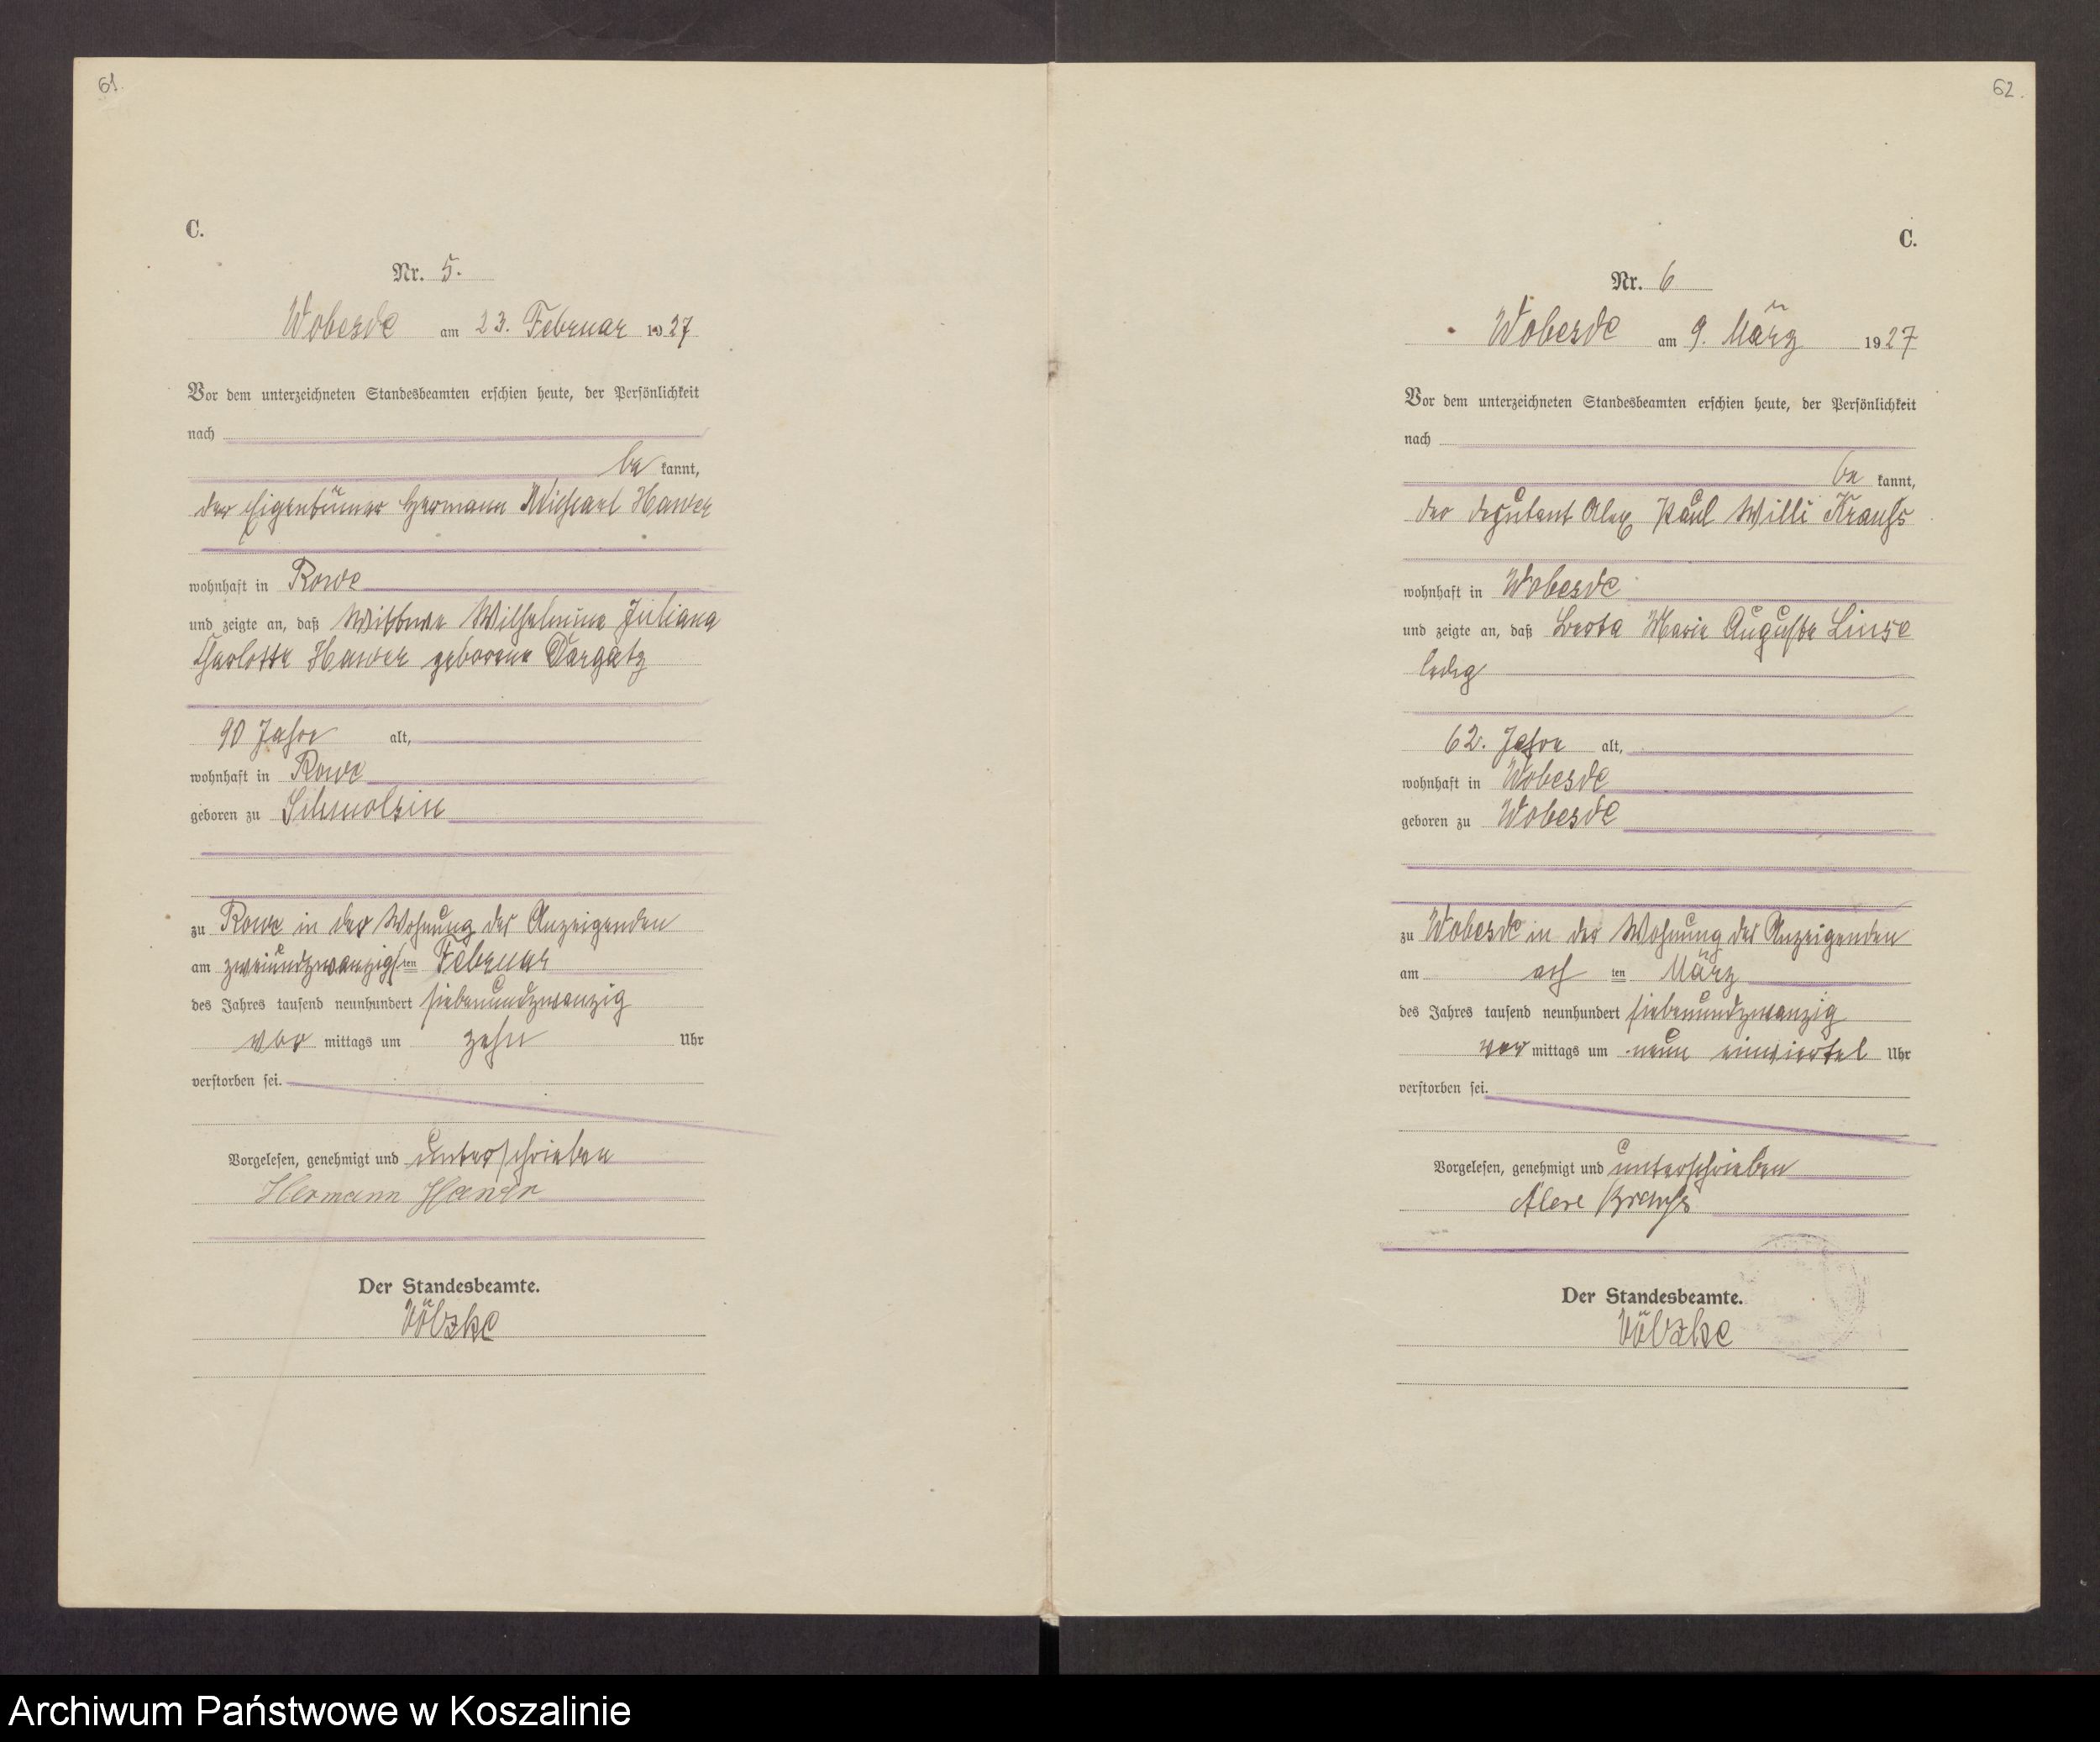 61.
C.
Nr. 5.
Wobesde am 23. Februar 1927
Vor dem unterzeichneten Standesbeamten erschien heute, der Persönlichkeit
nach
be kannt,
der Eigentümer Hermann Michael Hawer
wohnhaft in Rowe
und zeigte an, daß Wittwe Wilhelmine Juliana
Charlotte Hawer geborene Dargatz
90 Jahre alt,
wohnhaft in Rowe
geboren zu Schmolsin
zu Rowe in der Wohnung des Anzeigenden
am zweiundzwanzigsten Februar
des Jahres tausend neunhundert siebenundzwanzig
vor mittags um zehn Uhr
verstorben sei.
Vorgelesen, genehmigt und unterschrieben
Hermann Hawer
Der Standesbeamte.
Völzke
62.
C.
Nr. 6
Wobesde am 9. März 1927
Vor dem unterzeichneten Standesbeamten erschien heute, der Persönlichkeit
nach
be kannt,
der Deputant Alex Paul Willi Krauß
wohnhaft in Wobesde
und zeigte an, daß Berta Marie Auguste
ledig
62. Jahre alt,
wohnhaft in Wobesde
geboren zu Wobesde
zu Wobesde in der Wohnung des Anzeigenden
am ach ten März
des Jahres tausend neunhundert siebenundzwanzig
vor mittags um neun einviertel Uhr
verstorben sei.
Vorgelesen, genehmigt und unterschrieben
Krauß
Der Standesbeamte.
Völzke
Archiwum Państwowe w Koszalinie